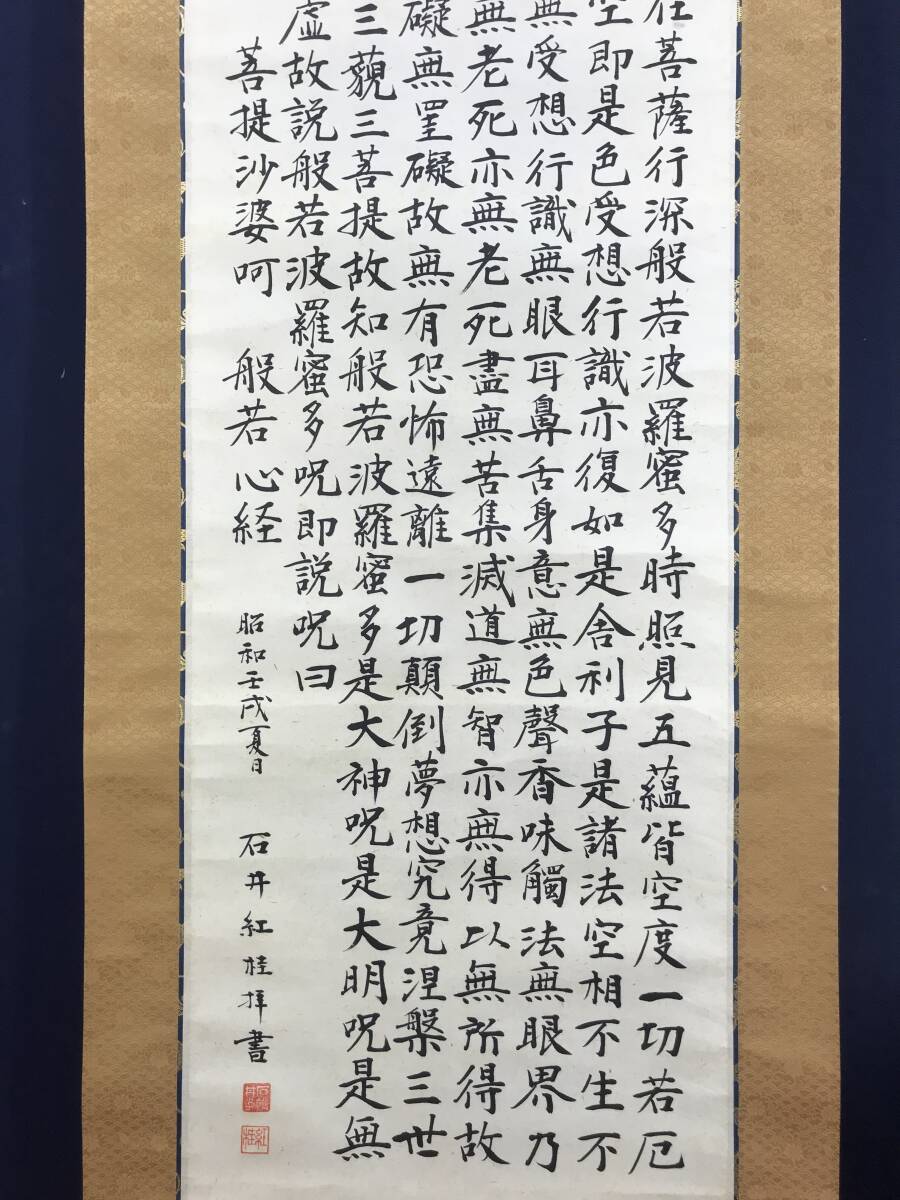 在菩薩行深般若波羅蜜多時照見五蘊皆空度一切若厄
空即是色受想行識亦復如是舎利子是諸法空相不生不
無受想行識無眼耳鼻舌身意無色聲香味觸法無眼界乃
無老死亦無老死盡無苦集滅道無智亦無得以無所得故
礙無罣礙故無有恐怖遠離一切顛倒夢想究竟涅槃三世
三藐三菩提故知般若波羅蜜多是大神呪是大明呪是無
虚故説般若波羅蜜多呪即説呪曰
菩提沙婆呵 般若心経
昭和壬戌夏日 石井紅桂拝書